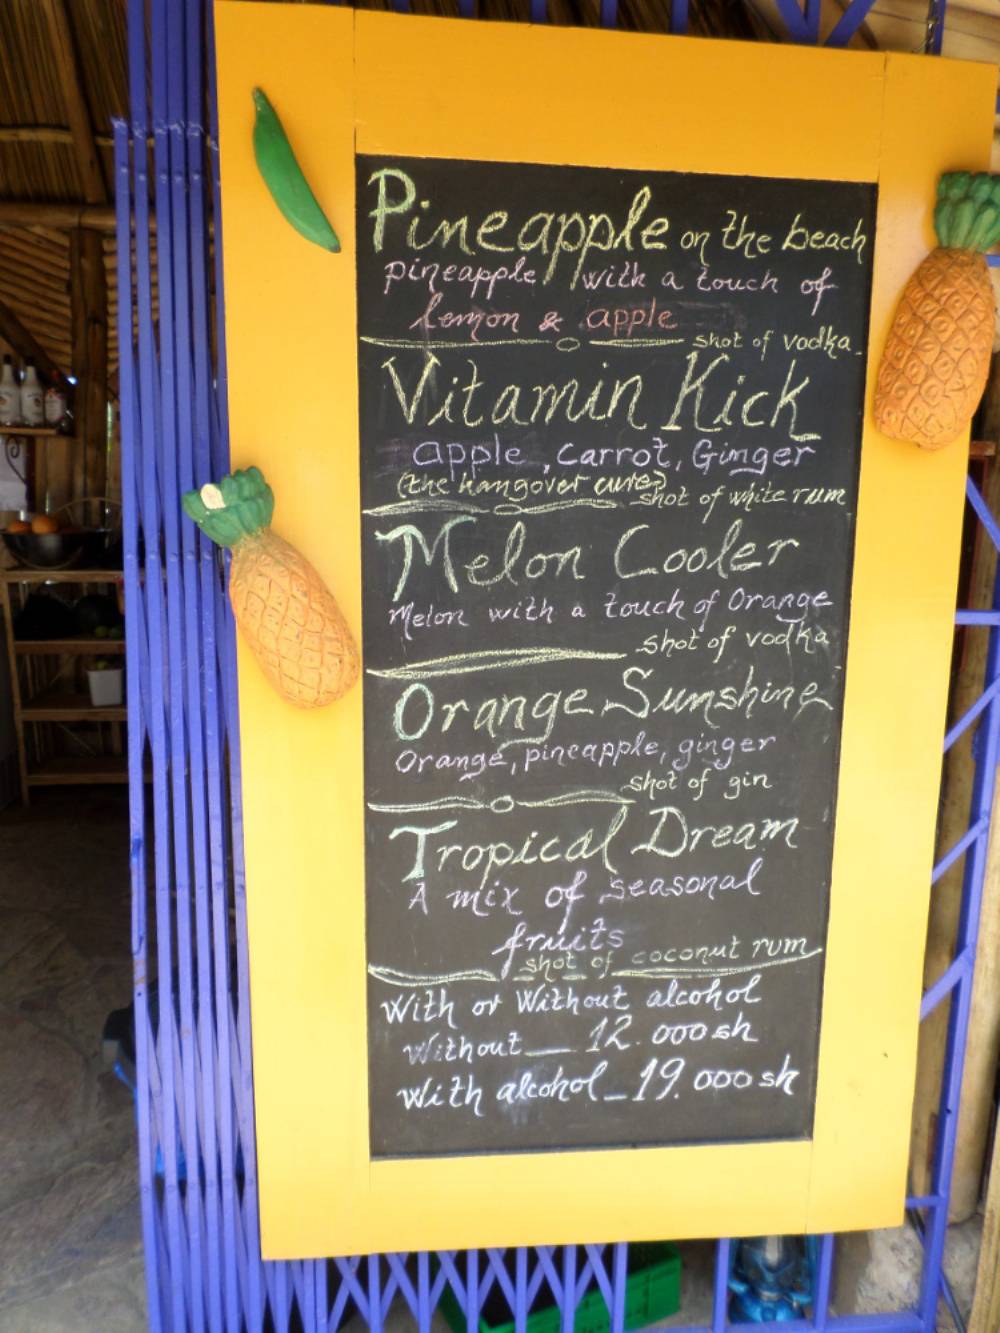 Pineapple on the beach
pineapple with a touch of
lemon & apple
shot of vodka
Vitamin Kick
apple, carrot, Ginger
(the hangover cure?)
shot of white rum
Melon Cooler
Melon with a touch of Orange
shot of vodka
Orange Sunshine
Orange, pineapple, ginger
shot of gin
Tropical Dream
A mix of seasonal
fruits
shot of coconut rum
With or Without alcohol
Without__ 12.000sh
With alcohol_19.000sh